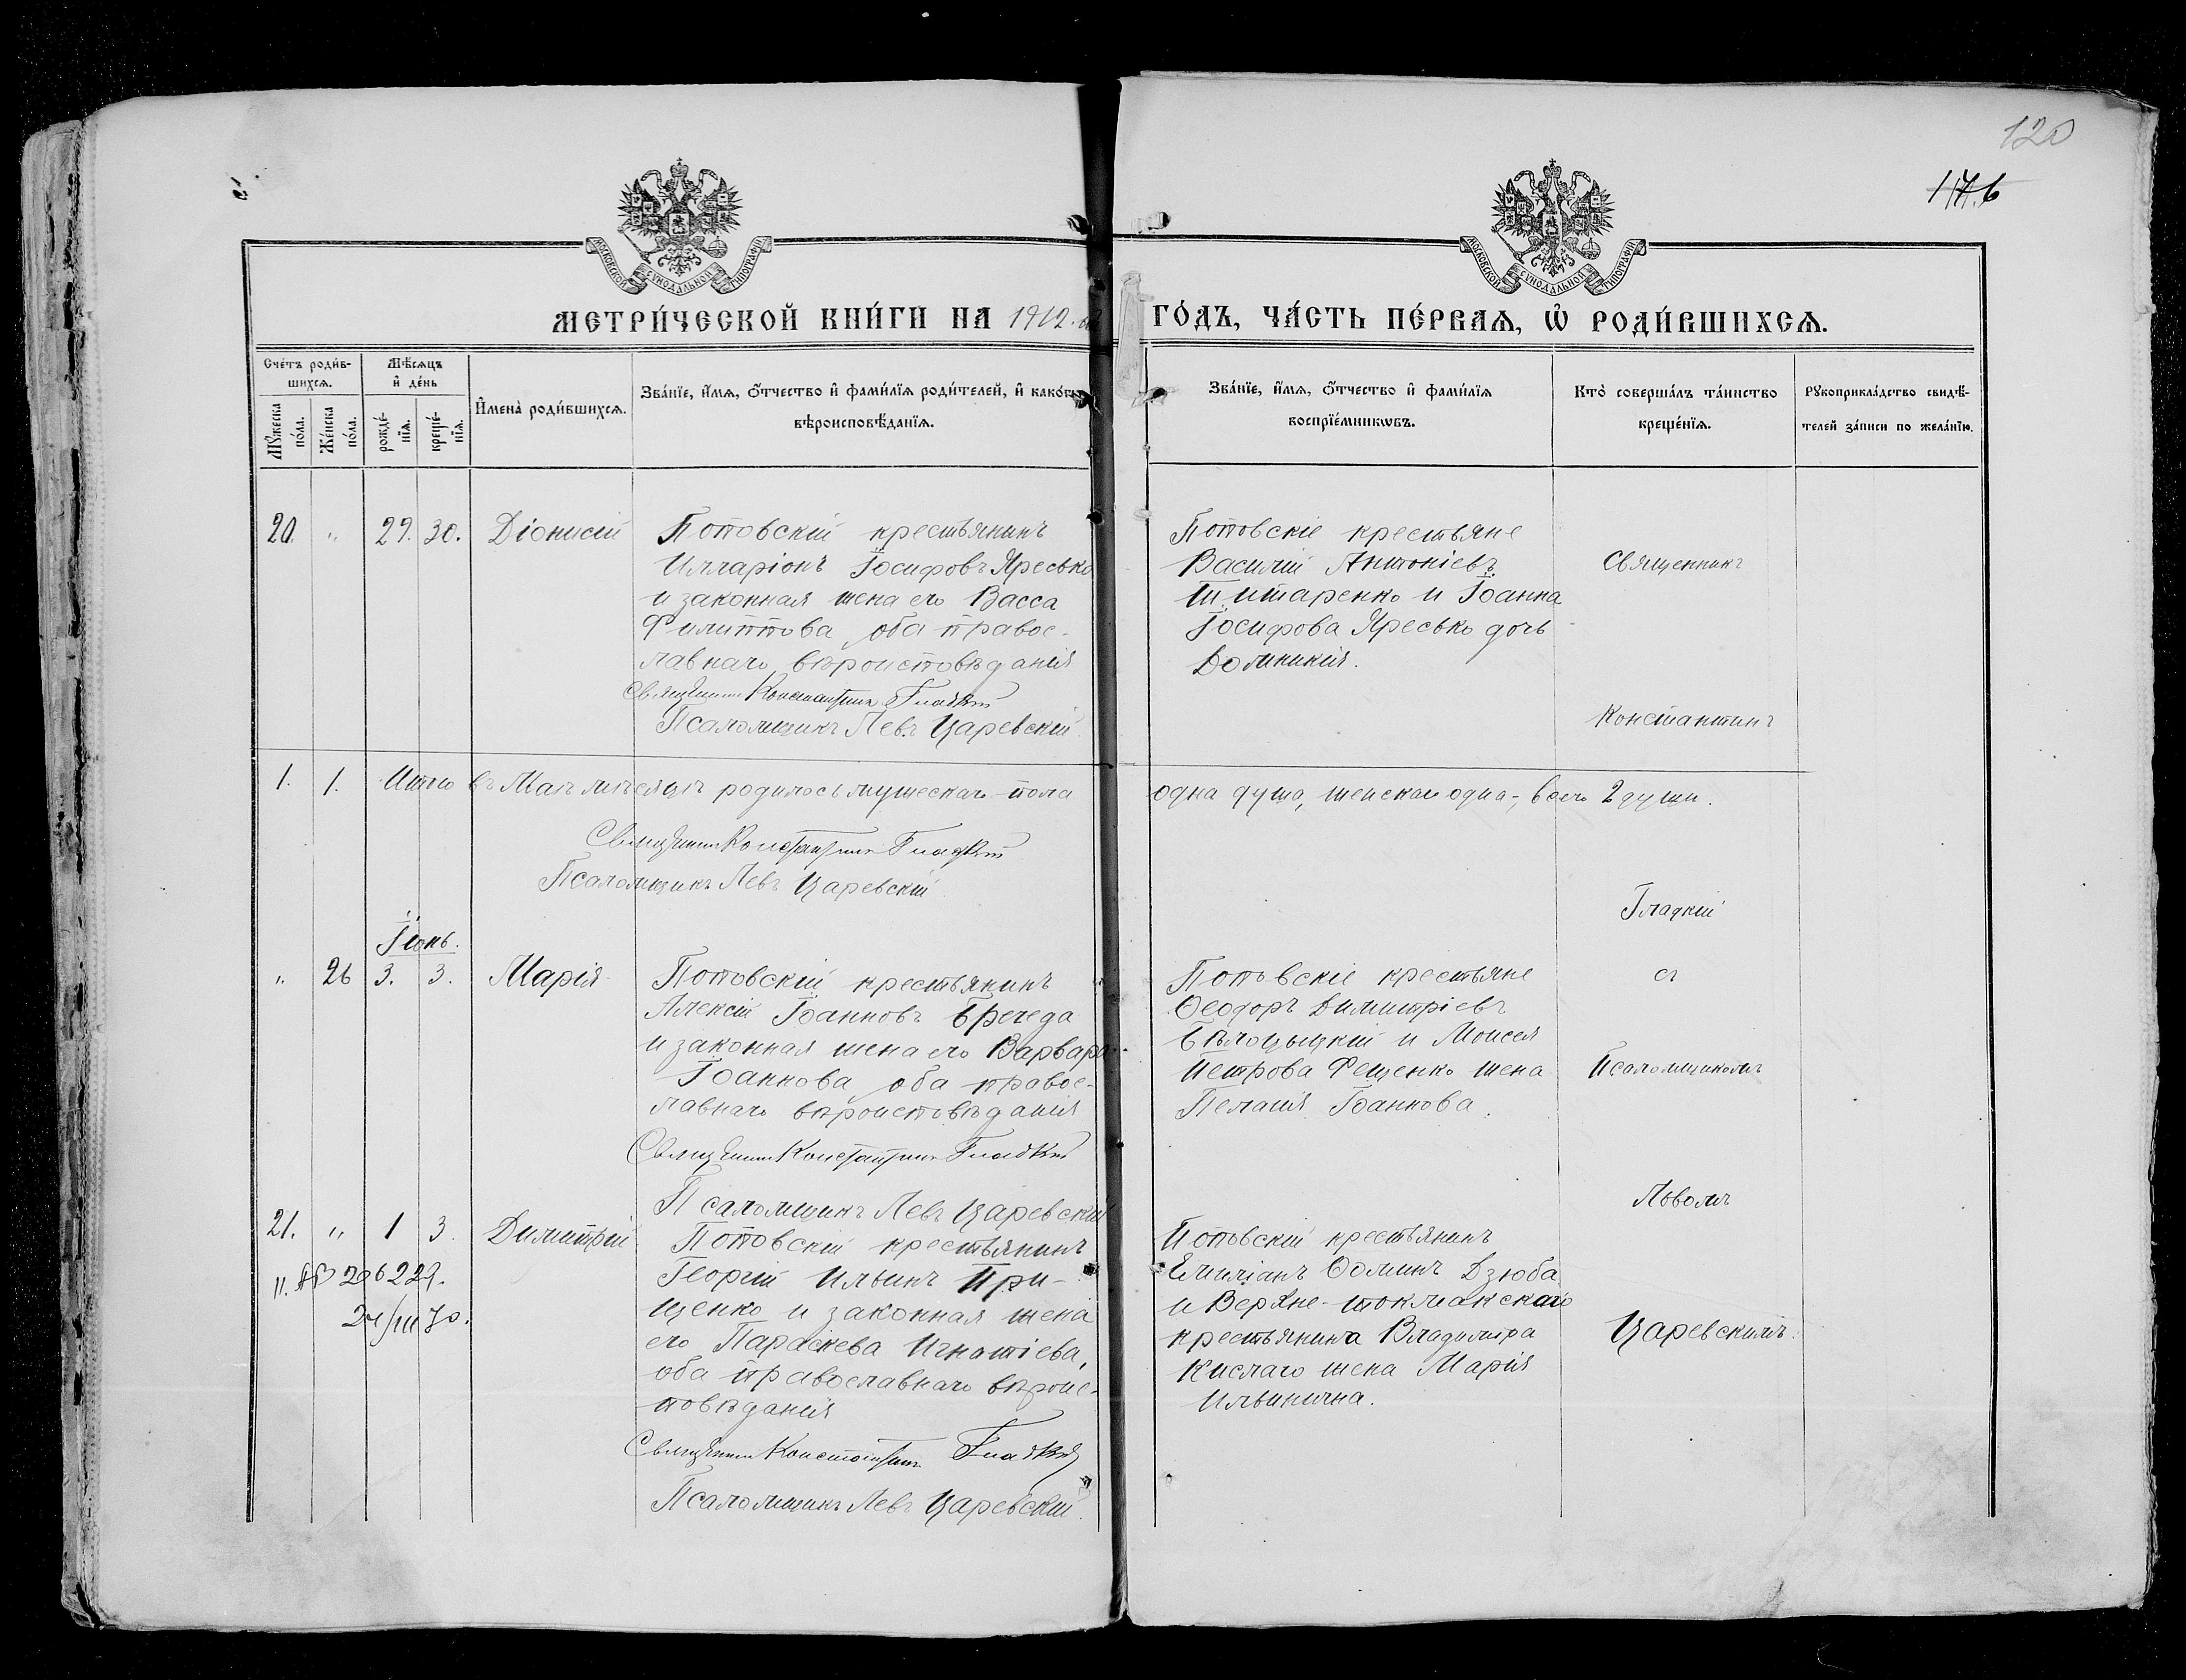 120
176
МОСКОВСКОЙ СѴНОДАЛЬНОЙ ТИПОГРАФІИ
МОСКОВСКОЙ СѴНОДАЛЬНОЙ ТИПОГРАФІИ
МЕТРИ́ЧЕСКОЙ КНИ́ГИ НА 1912
ГО́ДЪ, ЧА́СТЬ ПЕ́РВАЯ, Ѡ҆ РОДИ́ВШИХСЯ.
Сче́тъ роди́в-
шихся.
Мѣ́сяцъ
и҆ де́нь
Мꙋ́жеска
по́ла.
Же́нска
по́ла.
рожде́-
нїя.
креще́-
нїя.
И҆мена̀ роди́вшихся.
Зва́нїе, и҆́мя, ѻ҆́тчество и҆ фами́лїя роди́телей, и҆ како́гѡ
вѣроисповѣ́данїя.
Зва́нїе, и҆́мя, ѻ҆́тчество и҆ фами́лїя
воспрїе́мникѡвъ.
Кто̀ соверша́лъ та́инство
креще́нїя.
Рꙋкоприкла́дство свидѣ́-
телей за́писи по жела́нїю.
20. " 29. 30. Діонисій
Поповскій крестьянинъ
Илларіонъ Іосифовъ Яресько
и законная жена его Васса
Филиппова, оба правос-
лавнаго вѣроисповѣданія
Священникъ Константинъ Гладкій
Псаломщикъ Левъ Царевскій
Поповскіе крестьяне
Василій Антоніевъ
Титаренко и Іоанна
Іосифова Яресько дочь
Домникія.
Священникъ
Константинъ
1. 1. Итого въ Маѣ мѣсяцѣ родилось мужескаго пола
одна душа, женскаго одна, всего 2 души.
Священникъ Константинъ Гладкій
Псаломщикъ Левъ Царевскій
Гладкій
Іюнь.
" 26 3. 3. Марія
Поповскій крестьянинъ
Алексій Іоанновъ Бречеда
и законная жена его Варвара
Іоаннова, оба правос-
лавнаго вѣроисповѣданія
Священникъ Константинъ Гладкій
Псаломщикъ Левъ Царевскій
Поповскіе крестьяне
Ѳеодоръ Димитріевъ
Бѣлоцыцкій и Моисея
Петрова Фещенко жена
Пелагія Іоаннова.
съ
Псаломщикомъ
Львомъ
21. " 1 3. Димитрій
Поповскій крестьянинъ
Георгій Ильинъ При-
щенко и законная жена
его Параскева Игнатіева,
оба православнаго вѣроис-
повѣданія
Священникъ Константинъ Гладкій
Псаломщикъ Левъ Царевскій.
Поповскій крестьянинъ
Емиліанъ Ѳоминъ Дзюба
и Верхне-токмакскаго
крестьянина Владиміра
Кислаго жена Марія
Ильинична.
Царевскимъ.
206229.
24/III 70.